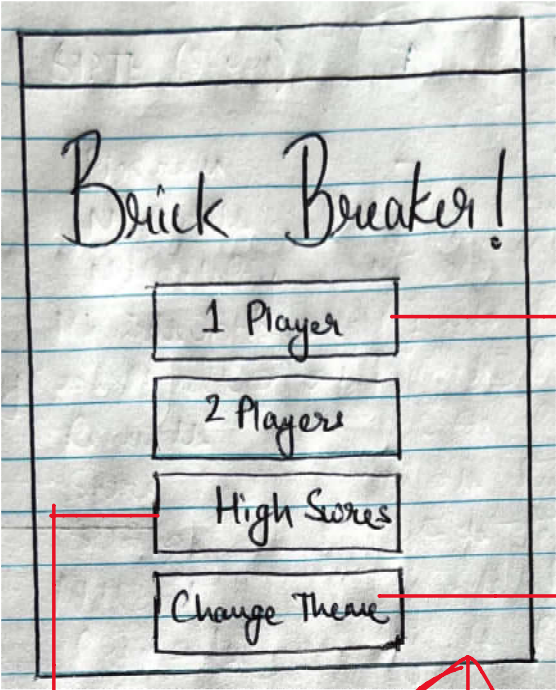 Brick Breaker!
1 Player
2 Players
High Scores
Change Theme